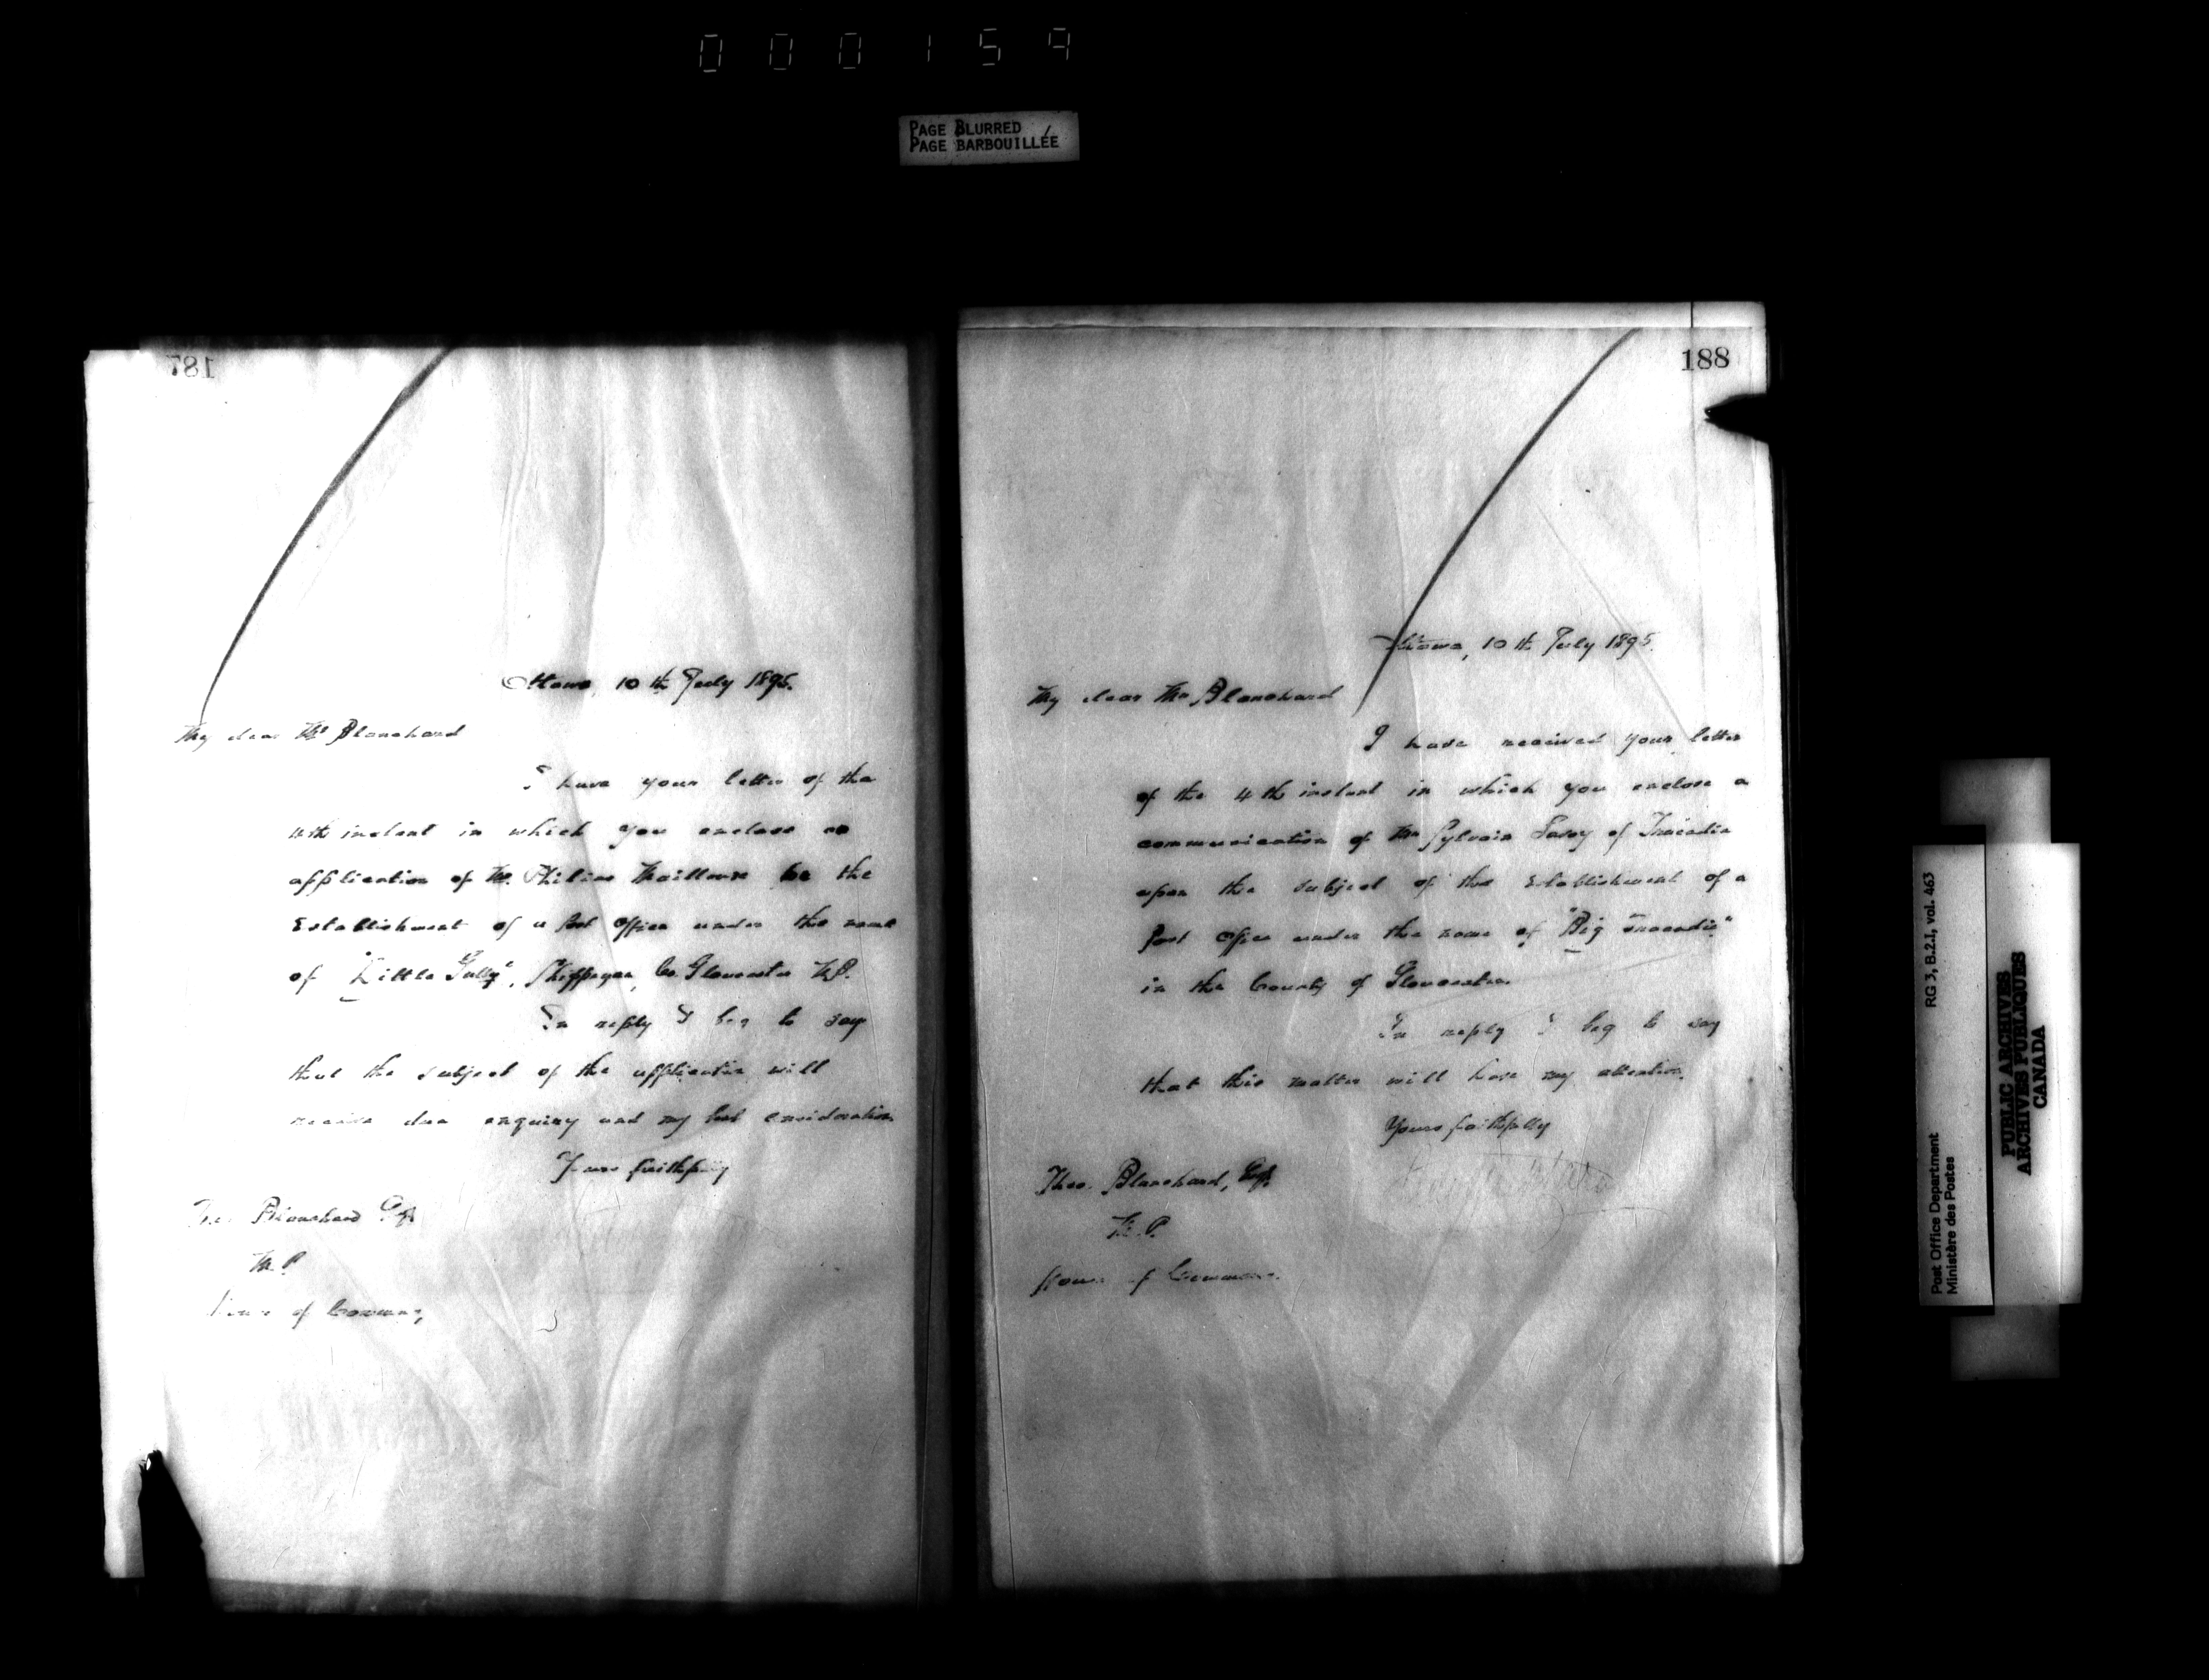 000159
PAGE BLURRED
PAGE BARBOUILLÉE
187
Ottawa, 10th July 1895.
My dear Mr Blanchard
I have your letter of the
4th instant in which you enclose an
application of M. Mailloux for the
Establishment of a Post Office under the name
of "Little Gully", Shippegan, Co. Gloucester N.B.
In reply I beg to say
that the subject of the application will
receive due enquiry and my best consideration
Yours faithfully
Theo. Blanchard Esq.
M.P.
House of Commons,
188
Ottawa, 10th July 1895.
My dear Mr Blanchard
I have received your letter
of the 4th instant in which you enclose a
communication of Mr Sylvain Savoy of Tracadie
upon the subject of the Establishment of a
Post Office under the name of "Big Tracadie"
in the County of Gloucester.
In reply I beg to say
that this matter will have my attention.
Yours faithfully
Theo. Blanchard, Esq.
M.P.
House of Commons.
Post Office Department
Ministère des Postes
RG 3, B.2.1, vol. 463
PUBLIC ARCHIVES
ARCHIVES PUBLIQUES
CANADA